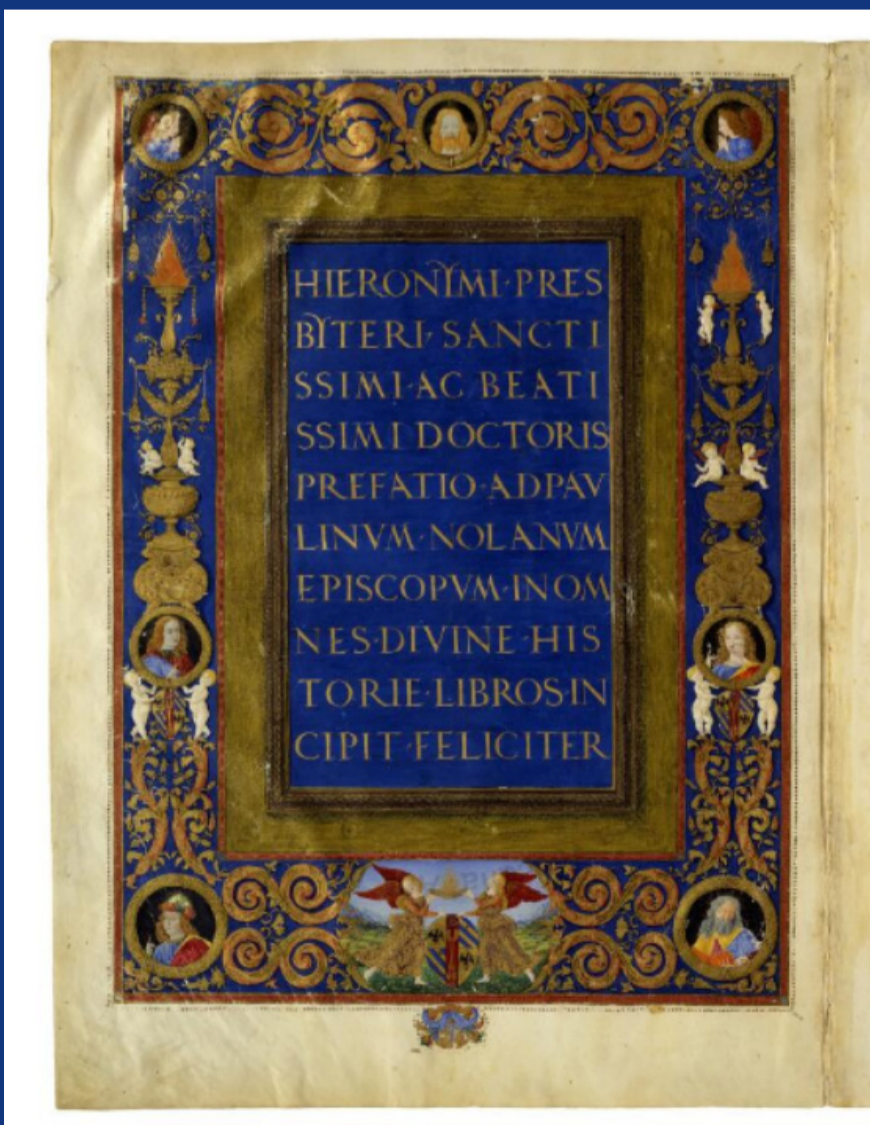 HIERONYMI·PRES
BYTERI·SANCTI
SSIMI·AC BEATI
SSIMI DOCTORIS
PREFATIO·AD PAV
LINVM·NOLANVM
EPISCOPVM·IN OM
NES·DIVINE·HIS
TORIE·LIBROS·IN
CIPIT·FELICITER